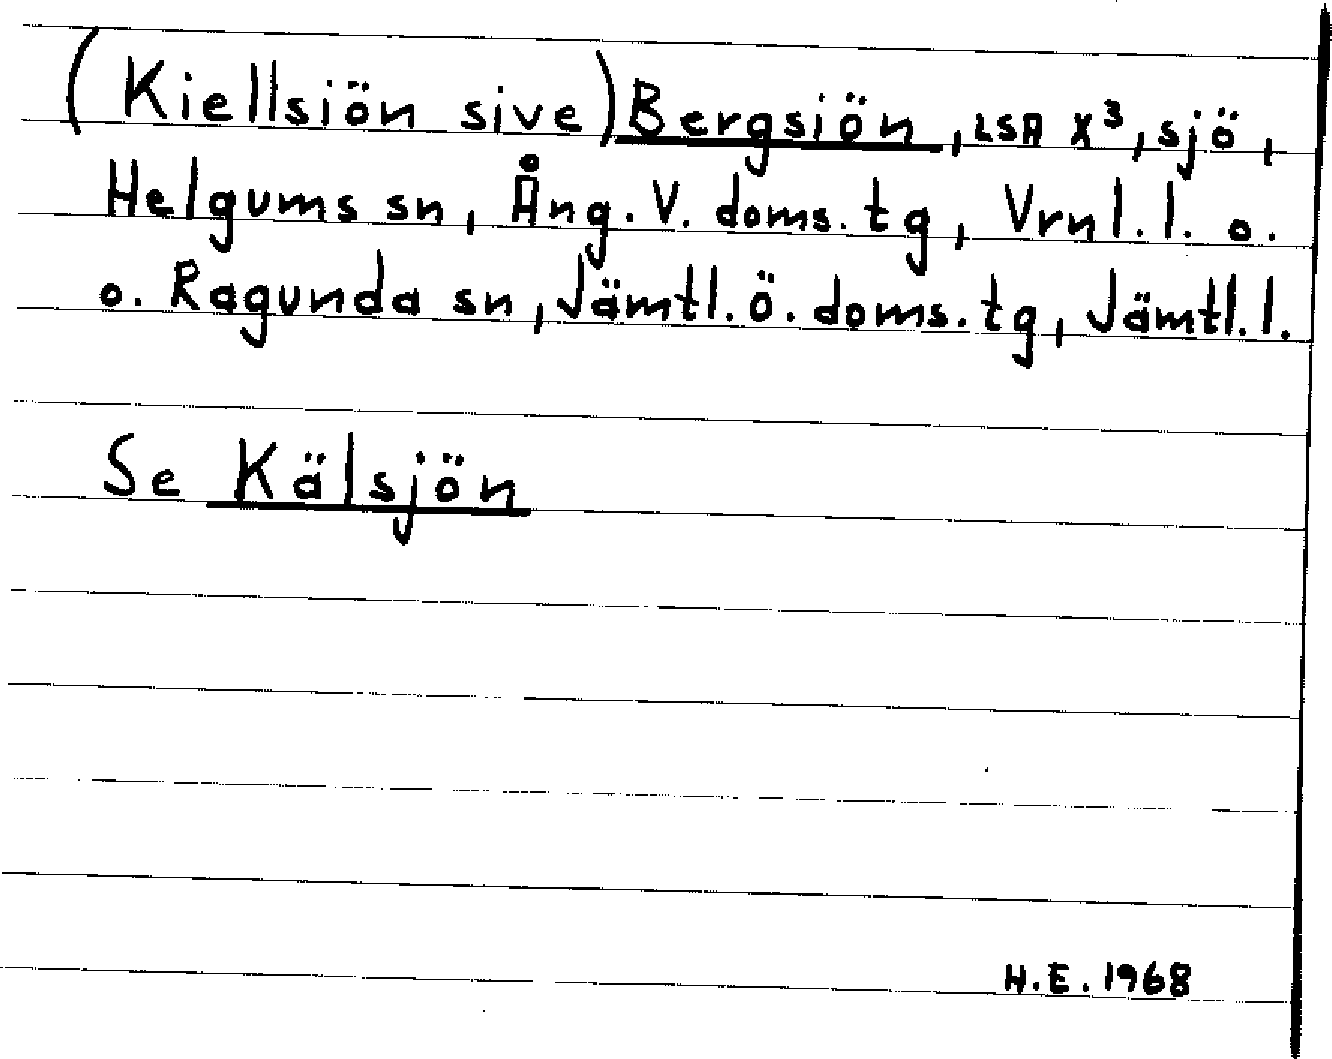 (Kiellsiön sive) Bergsiön, LSA X³, sjö,
Helgums sn, Ång. V. doms. tg, Vrnl. l. o.
o. Ragunda sn, Jämtl. ö. doms. tg, Jämtl. l.
Se Kälsjön
H.E. 1968